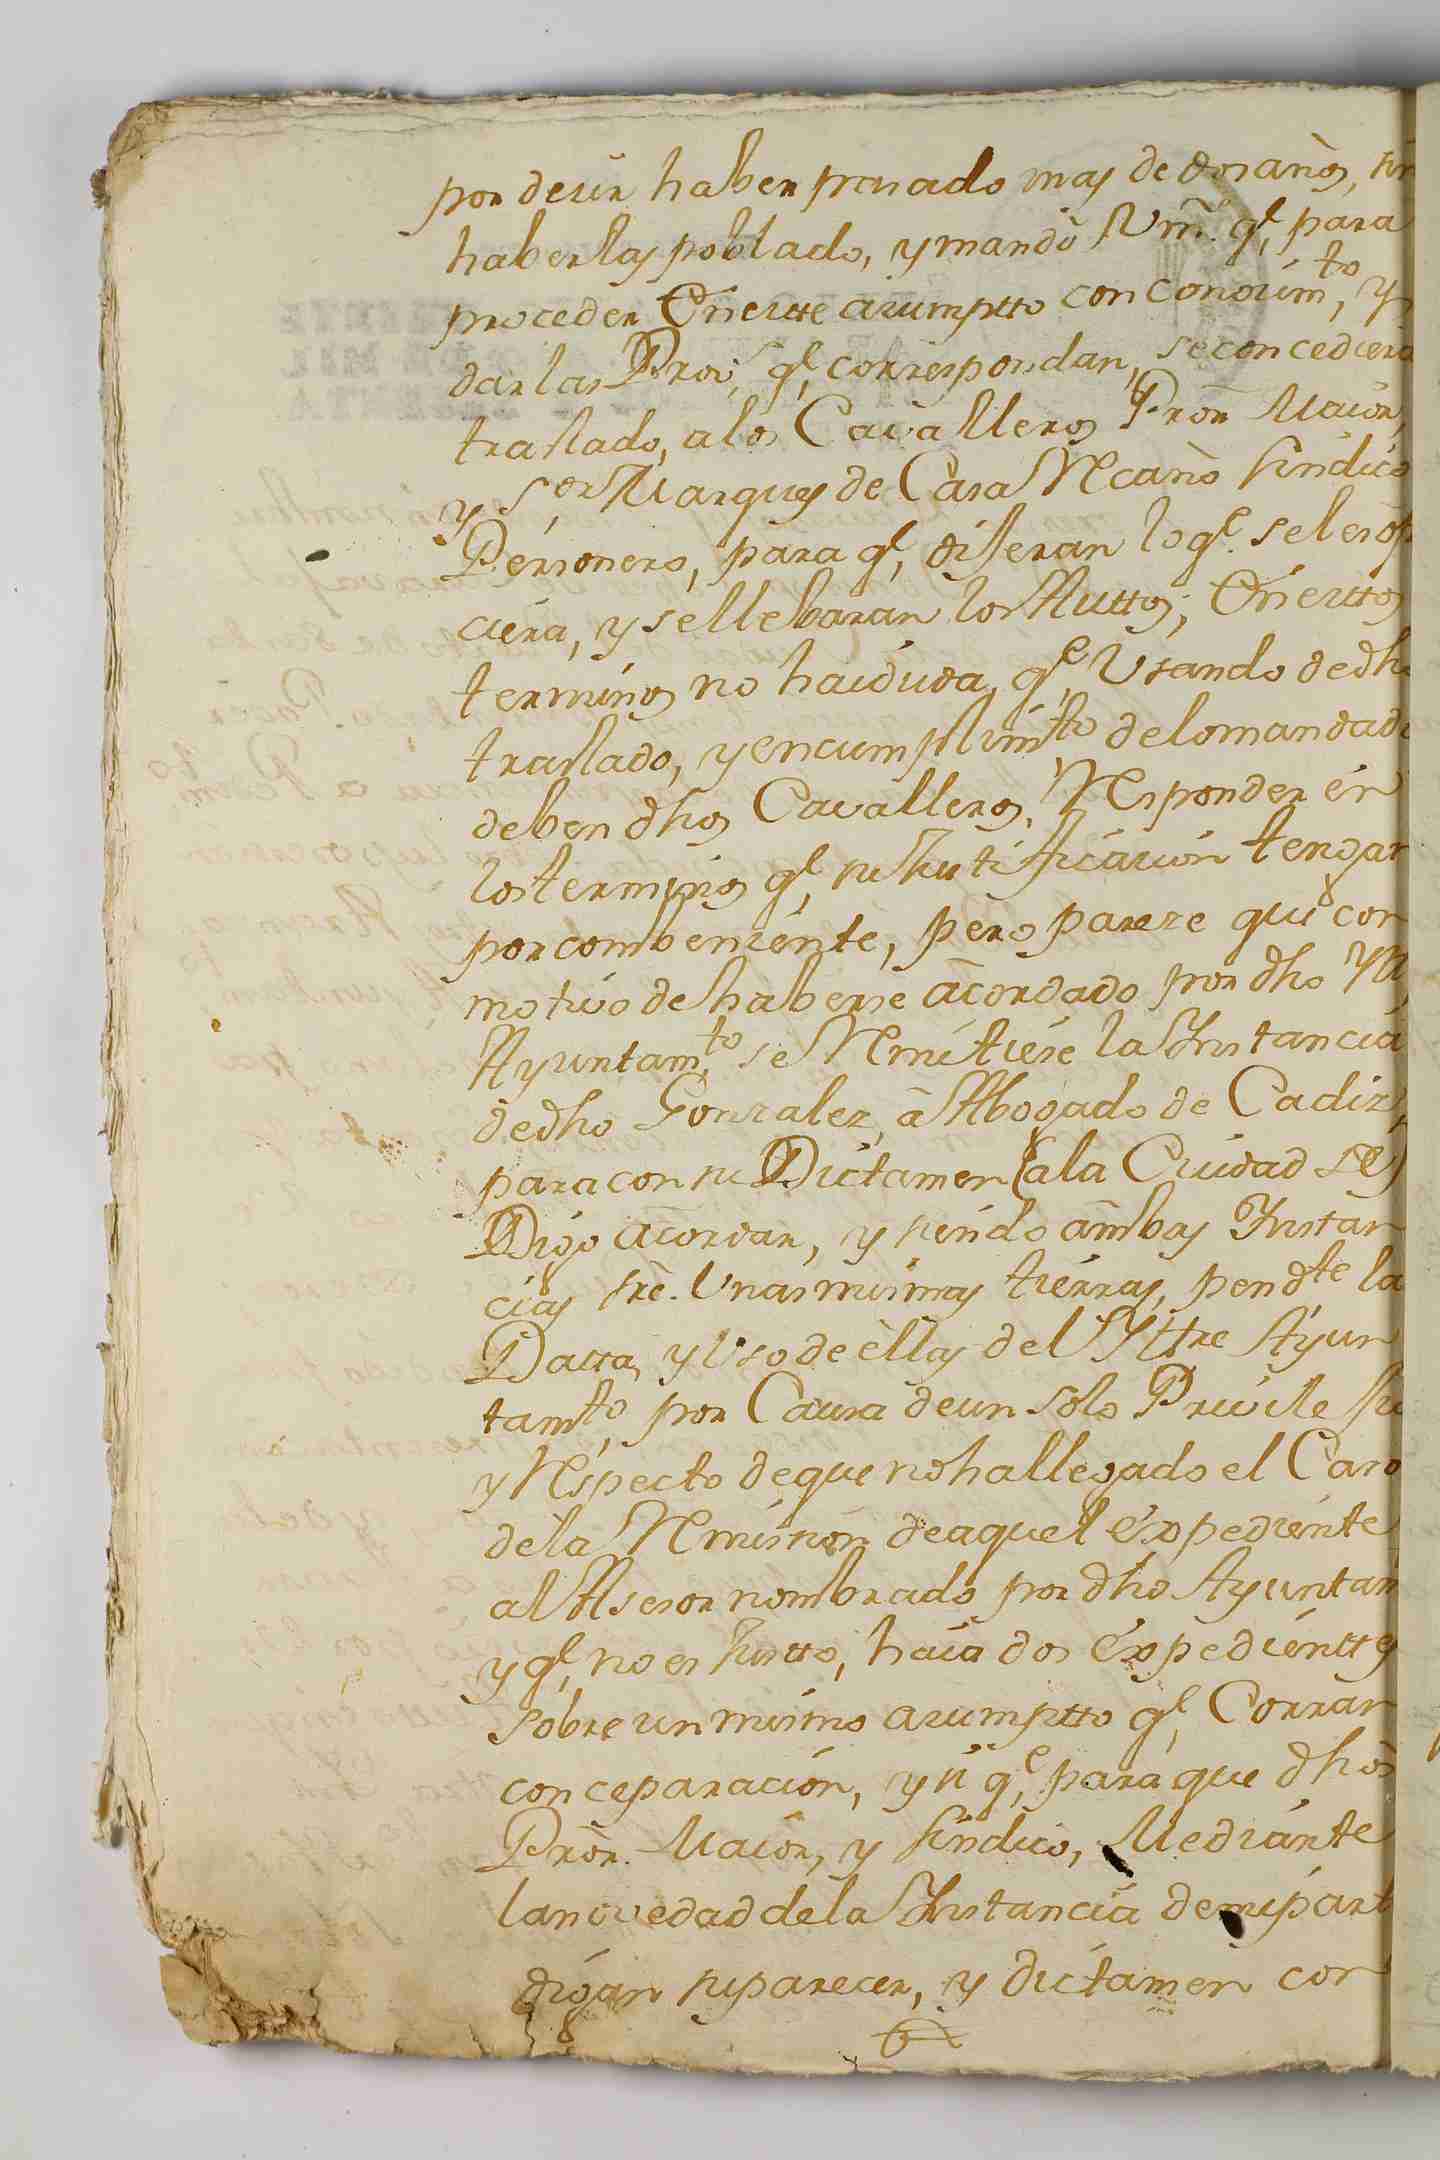 por decir haber pasado mas de dos años, sin
haberlas poblado, y mandó Vm. q.e para
proceder en este asumptto con conosim.to, y
dar las Prov.s q.e correspondan, se concediera
traslado, a los Cavalleros Pror. Maior,
y S.or Marques de Casa Recaño Sindico
Personero, para q.e, dijeran lo q.e se les ofre
ciera, y se llebaran los Auttos; En esttos
terminos no hai duda, q.e, Usando de dho
traslado, y en cumplim.to de lo mandado
deben dhos Cavalleros, Responder en
los terminos q.e, su Justificacion tengan
por combeniente, pero parese que con
motivo de haberse acordado por dho Yll.e
Ayuntam.to se Remitiese la Instancia
de dho Gonzalez, a Abogado de Cadiz,
para con su Dictamen (a la Ciudad se)
Digo acordar, y siendo ambas Instan
cias sre. Unas mismas tierras, pend.te la
Datta, y Uso de ellas del Yltre Ayun
tam.to, por Causa de un solo Privilejio
y Respecto de que no ha llegado el Caso
de la Remision de aquel Expediente
al Asesor nombrado por dho Ayuntam
y q.e, no es Justto, haia dos Expedienttes
sobre un mismo asumptto q.e, Corran
con ceparacion, y si q.e, para que dhos
Pror. Maior, y Sindico, Mediante
la novedad de la Instancia de mi part
digan su parecer, y dictamen con